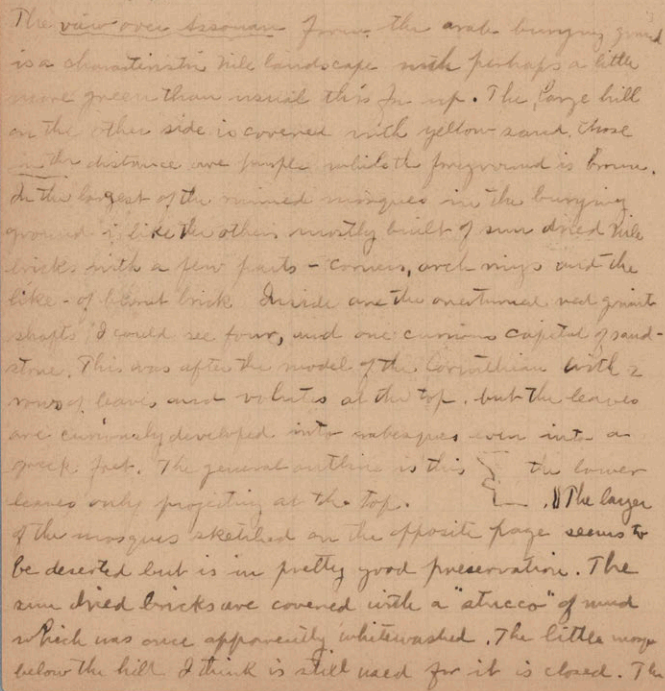 The view over Assouan from the arab burying ground
is a characteristic Nile landscape with perhaps a little
more green than usual this far up. The large hill
on the other side is covered with yellow sand, those
in the distance are purple while the foreground is brown.
In the largest of the ruined mosques in the burying
ground is like the others mostly built of sun dried Nile
bricks with a few parts - corners, arch rings and the
like - of burnt brick Inside are the overturned red granite
shafts I could see four, and one curious capital of sand-
stone. This was after the model of the Corinthian with 2
rows of leaves and volutes at the top, but the leaves
are curiously developed into arabesques even into a
greek fret. The general outline is this the lower
leaves only projecting at the top. The larger
of the mosques sketched on the opposite page seems to
be deserted but is in pretty good preservation. The
sun dried bricks are covered with a "stucco" of mud
which was once apparently whitewashed. The little mosque
below the hill I think is still used for it is closed. The